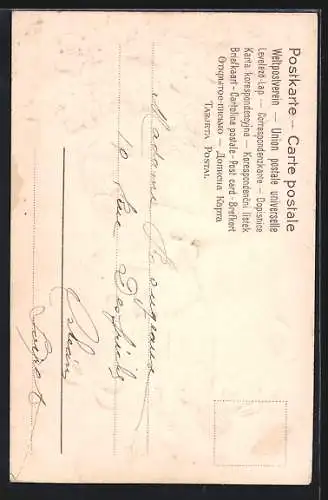 Postkarte — Carte postale
Weltpostverein — Union postale universelle
Levelező-Lap — Correspondenzkarte — Dopisnice
Karta korespondencyjna — Korespondenční lístek
Briefkaart - Cartolina postale - Post card - Brefkort
Открытое письмо — Дописна Карта
TARJETA POSTAL
Madame
10 Rue